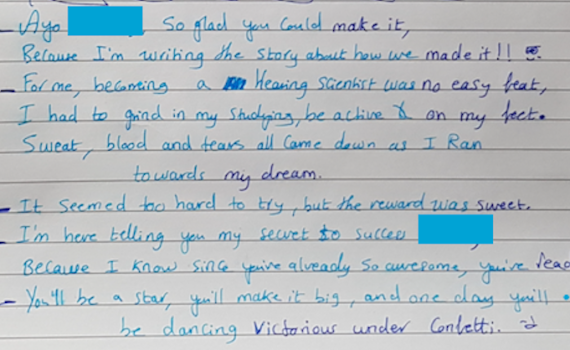 - Ayo So glad you could make it,
Because I'm writing the story about how we made it!!
- For me, becoming a Hearing Scientist was no easy feat,
I had to grind in my studying, be active & on my feet.
Sweat, blood and tears all came down as I Ran
towards my dream.
- It seemed too hard to try, but the reward was sweet.
- I'm here telling you my secret to success ,
Because I know since you've already so awesome, you've
- You'll be a star, you'll make it big, and one day you'll
be dancing Victorious under Confetti.